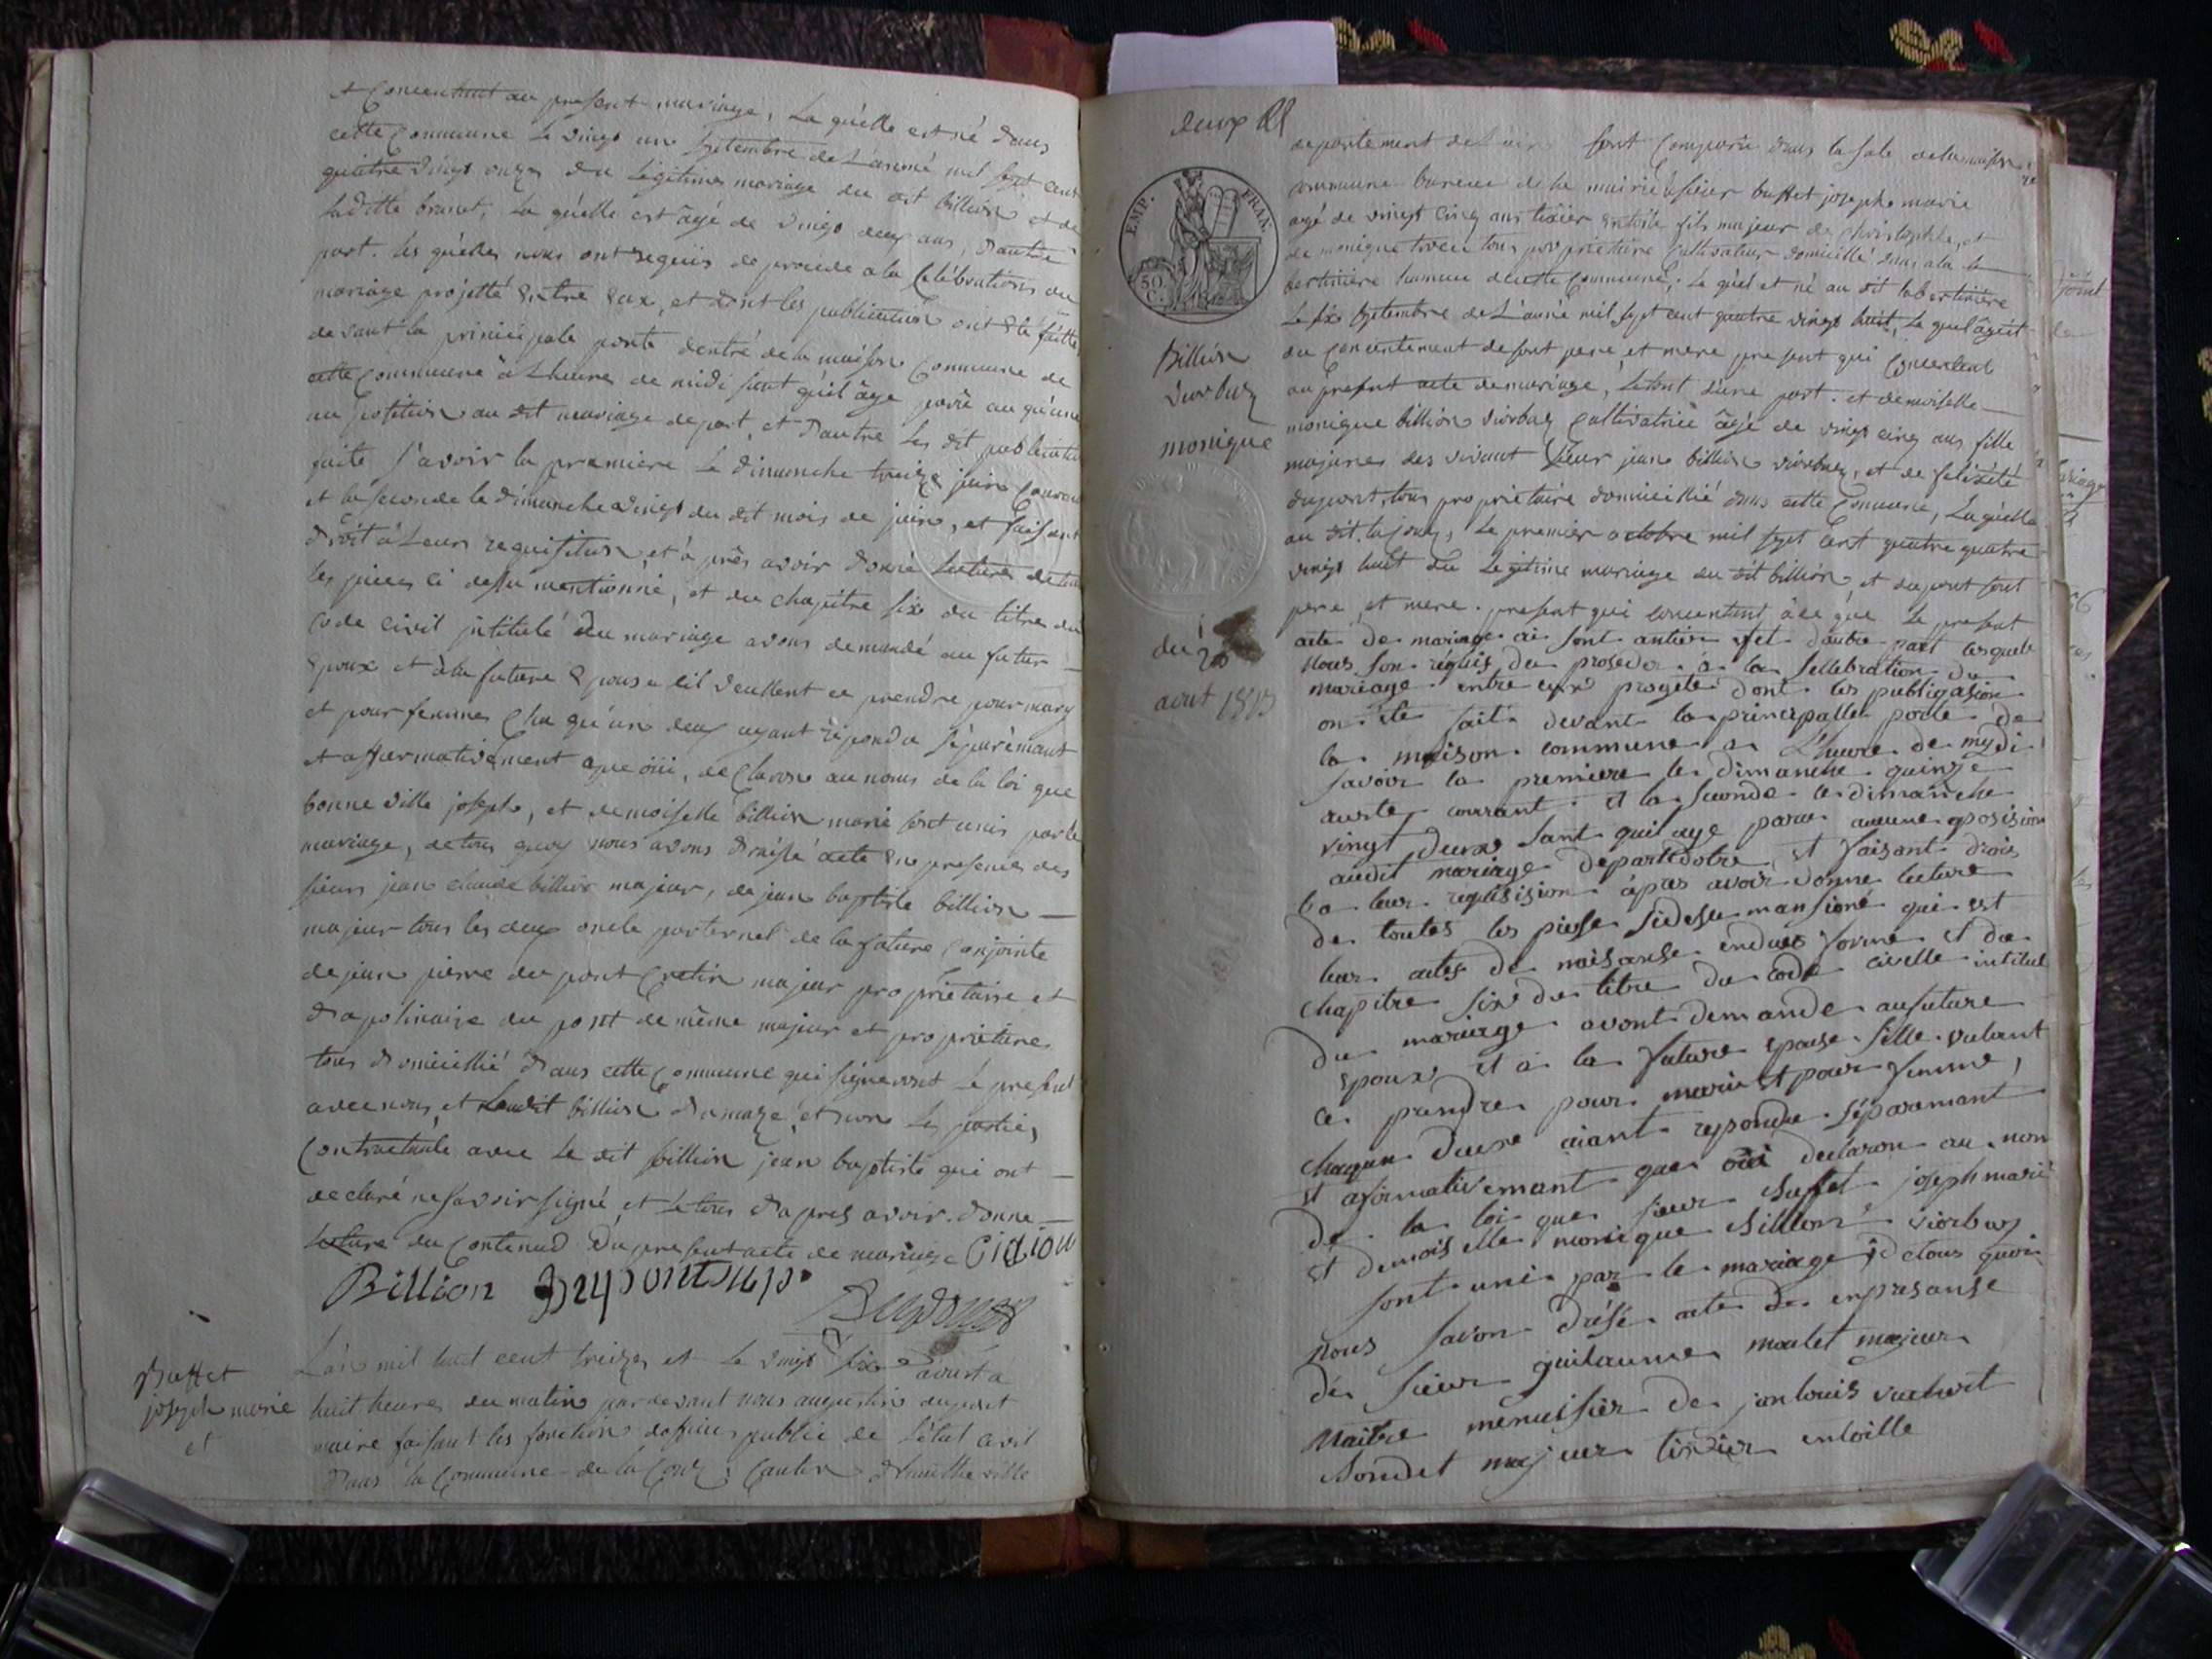 et Concentant au present mariage, La quélle est né dans
cette Commune Le vingt un Septembre de L'année mil sept cent
quattre vingt onze, du Légitime mariage du dit billion et de
laditte brunet, La quélle est âgé de vingt deux ans, d'autre
part. Les quélles nous ont requis de procédé a la Célébration du
mariage projetté Entre Eux, et dont les publication ont été faitte
devant la principale porte dentré de la maison Commune de
cette Commune à Lheure de midi sant quil âye parû auqu'une
au position au dit mariage de part, et d'autre Les dit publication
faite s'avoir la première Le dimanche treize juin Courant
et la seconde le dimanche vingt du dit mois de juin, et faisant
droit à Leurs requisition, et à près avoir donné Lecture de toute
les pieces ci dessu mentionné, et du chapitre six du titre du
Code civil jntitulé du mariage avons demandé au futur
Epoux et à la future Epouse s'il veullent ce prendre pour mary
et pour femme Cha qu'un deux ayant répondu séparémant
et affirmativement que öüi, déClarons au noms de la loi que
bonneville joseph, et demoiselle billion marie sont unis par le
mariage, de tous quoy nous avons dréssé acte En presence des
sieurs jean claude billion majeur, de jean baptiste billion
majeur tous les deux oncle parternel de la future Conjointe
de jean pierre du pont Cretin majeur propriétaire et
dapolinaire du pont de même majeur et propriétaire
tous domicillié dans cette Commune qui signeront Le present
avec nous, et Billion damaze, et non Les parties
Contractante avec Le dit billion jean baptiste qui ont
déclaré ne savoir signé, et Le tous d'apres avoir donné
Lecture du Contenud du present acte de mariage
Billion Dupont
Dupont
Buffet
joseph marie
et
L'an mil huit cent treize et le vingt six avust a
huit heure du matin par devant nous augustin dupont
maire faisant les fonction dofficier public de Létat civil
dans la Commune de la Coux, Canton d'hautteville
deux
EMP. FRAN.
50 C.
Billion
viorbuz
monique
du 26
août 1813
departement de L'ain sont Comparû dans la sale de la maison
commune bureau de la mairie Le sieur buffet joseph marie
agé de vingt cinq ans tixier Entoile fils majeur de christophle, et
de monique tous propriétaire Cultivateur domicillié dans a la
bertiniere hameau de cette Commune; Le quél et né au dit labertinière
Le six septembre de L'année mil sept cent quatre vingt huit, Le quel âgit
du Concentement de sont pere et mere present qui Concentent
au present acte de mariage, d'une part. et demoiselle
monique billion viorbuz Cultivatrice âgé de vingt cinq ans fille
majeure des vivant Sieur jean billion viorbuz, et de felicité
dupont, tous propriétaire domicillié dans cette Commune, La quélle
au dit Le premier octobre mil sept cent quatre quatre
vingt huit du Légitime mariage du dit billion et dupont sont
pere et mere present qui concentent à ce que Le present
acte de mariage ai sont antier efet d'autre part lesquels
nous son réquis de proseder a la sellebration du
mariage entre eux progeté dont les publigasion
on été fait devant la principalle porte de
la maison commune a L'heure de mydi
savoir la premiere le dimanche quinze
auste courrant et la seconde le dimanche
vingt deux sant quil aye paru aucune oposision
audit mariage de part et dotre, et faisant droit
a leur requisision àpres avoir donné lecture
de toutes les piesse sidesu mansioné qui est
leur actes de naisanse endues forme et du
chapitre six du titre du code civelle intitul
du mariage avont demande au future
epoux et a la future epouse sille vulant
ce prendre pour marie et pour femme,
chaqun deuxe aiant reponduе séparemant
et afirmativemant que oüi declaron au non
de la loi que sieur Buffet joseph marie
et demoiselle monique Billion viorbuz
sont uni par le mariage de tous quoi
nous savon drésé acte de enprésanse
des sieur guilaume moulet majeur
maitre menuisier de janlouis vuchert
Bondet majeur tixier entoille